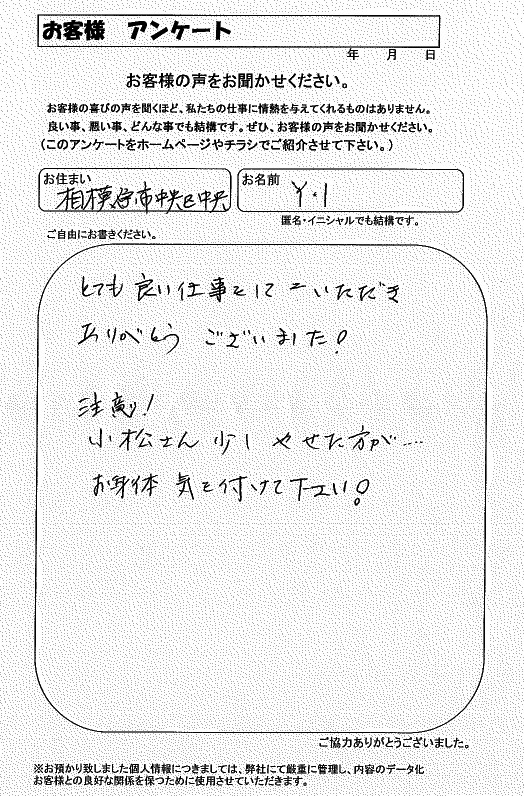 お客様 アンケート
年 月 日
お客様の声をお聞かせください。
お客様の喜びの声を聞くほど、私たちの仕事に情熱を与えてくれるものはありません。
良い事、悪い事、どんな事でも結構です。ぜひ、お客様の声をお聞かせください。
(このアンケートをホームページやチラシでご紹介させて下さい。)
お住まい
相模原市中央区中央
お名前
Y.I
匿名・イニシャルでも結構です。
ご自由にお書きください。
とても良い仕事をして いただき
ありがとう ございました!
注意!
小松さん 少し やせた方が....
お身体 気を付けて下さい!
ご協力ありがとうございました。
※お預かり致しました個人情報につきましては、弊社にて厳重に管理し、内容のデータ化
お客様との良好な関係を保つために使用させていただきます。